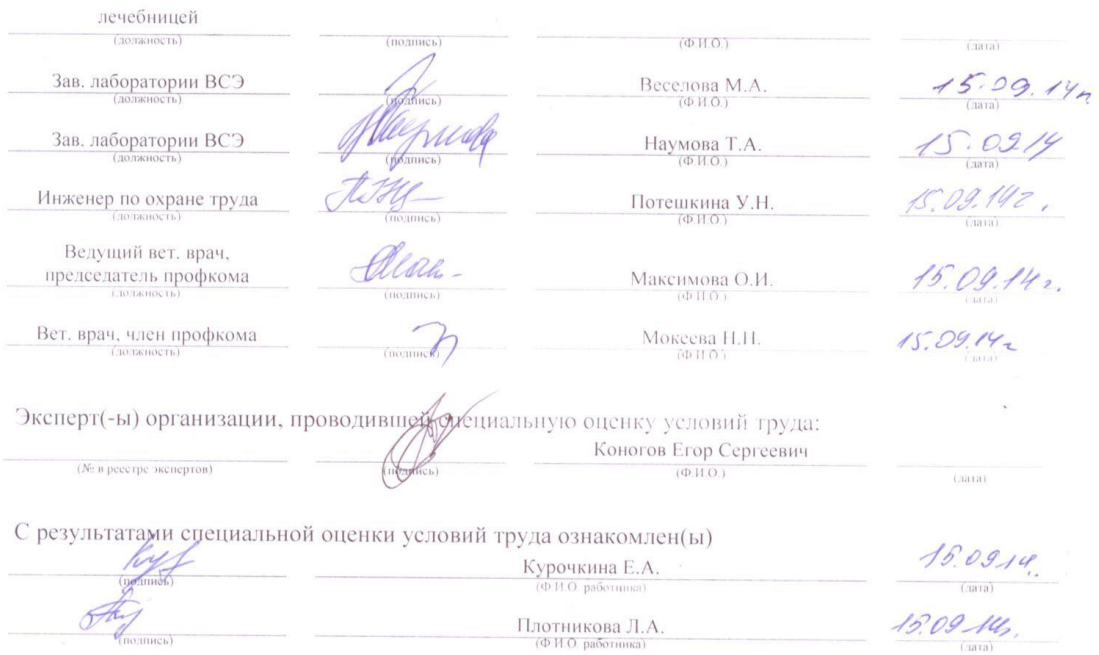 лечебницей
(должность) (подпись) (Ф.И.О.) (дата)
Зав. лаборатории ВСЭ Веселова М.А. 15.09.14г
(должность) (подпись) (Ф.И.О.) (дата)
Зав. лаборатории ВСЭ Наумова Т.А. 15.09.14
(должность) (подпись) (Ф.И.О.) (дата)
Инженер по охране труда Потешкина У.Н. 15.09.14г.
(должность) (подпись) (Ф.И.О.) (дата)
Ведущий вет. врач,
председатель профкома Максимова О.И. 15.09.14г.
(должность) (подпись) (Ф.И.О.) (дата)
Вет. врач, член профкома Мокеева Н.Н. 15.09.14г
(должность) (подпись) (Ф.И.О.) (дата)
Эксперт(-ы) организации, проводившей специальную оценку условий труда:
Коногов Егор Сергеевич
(№ в реестре экспертов) (подпись) (Ф.И.О.) (дата)
С результатами специальной оценки условий труда ознакомлен(ы)
Курочкина Е.А. 15.09.14.
(подпись) (Ф.И.О. работника) (дата)
Плотникова Л.А. 15.09.14г.
(подпись) (Ф.И.О. работника) (дата)